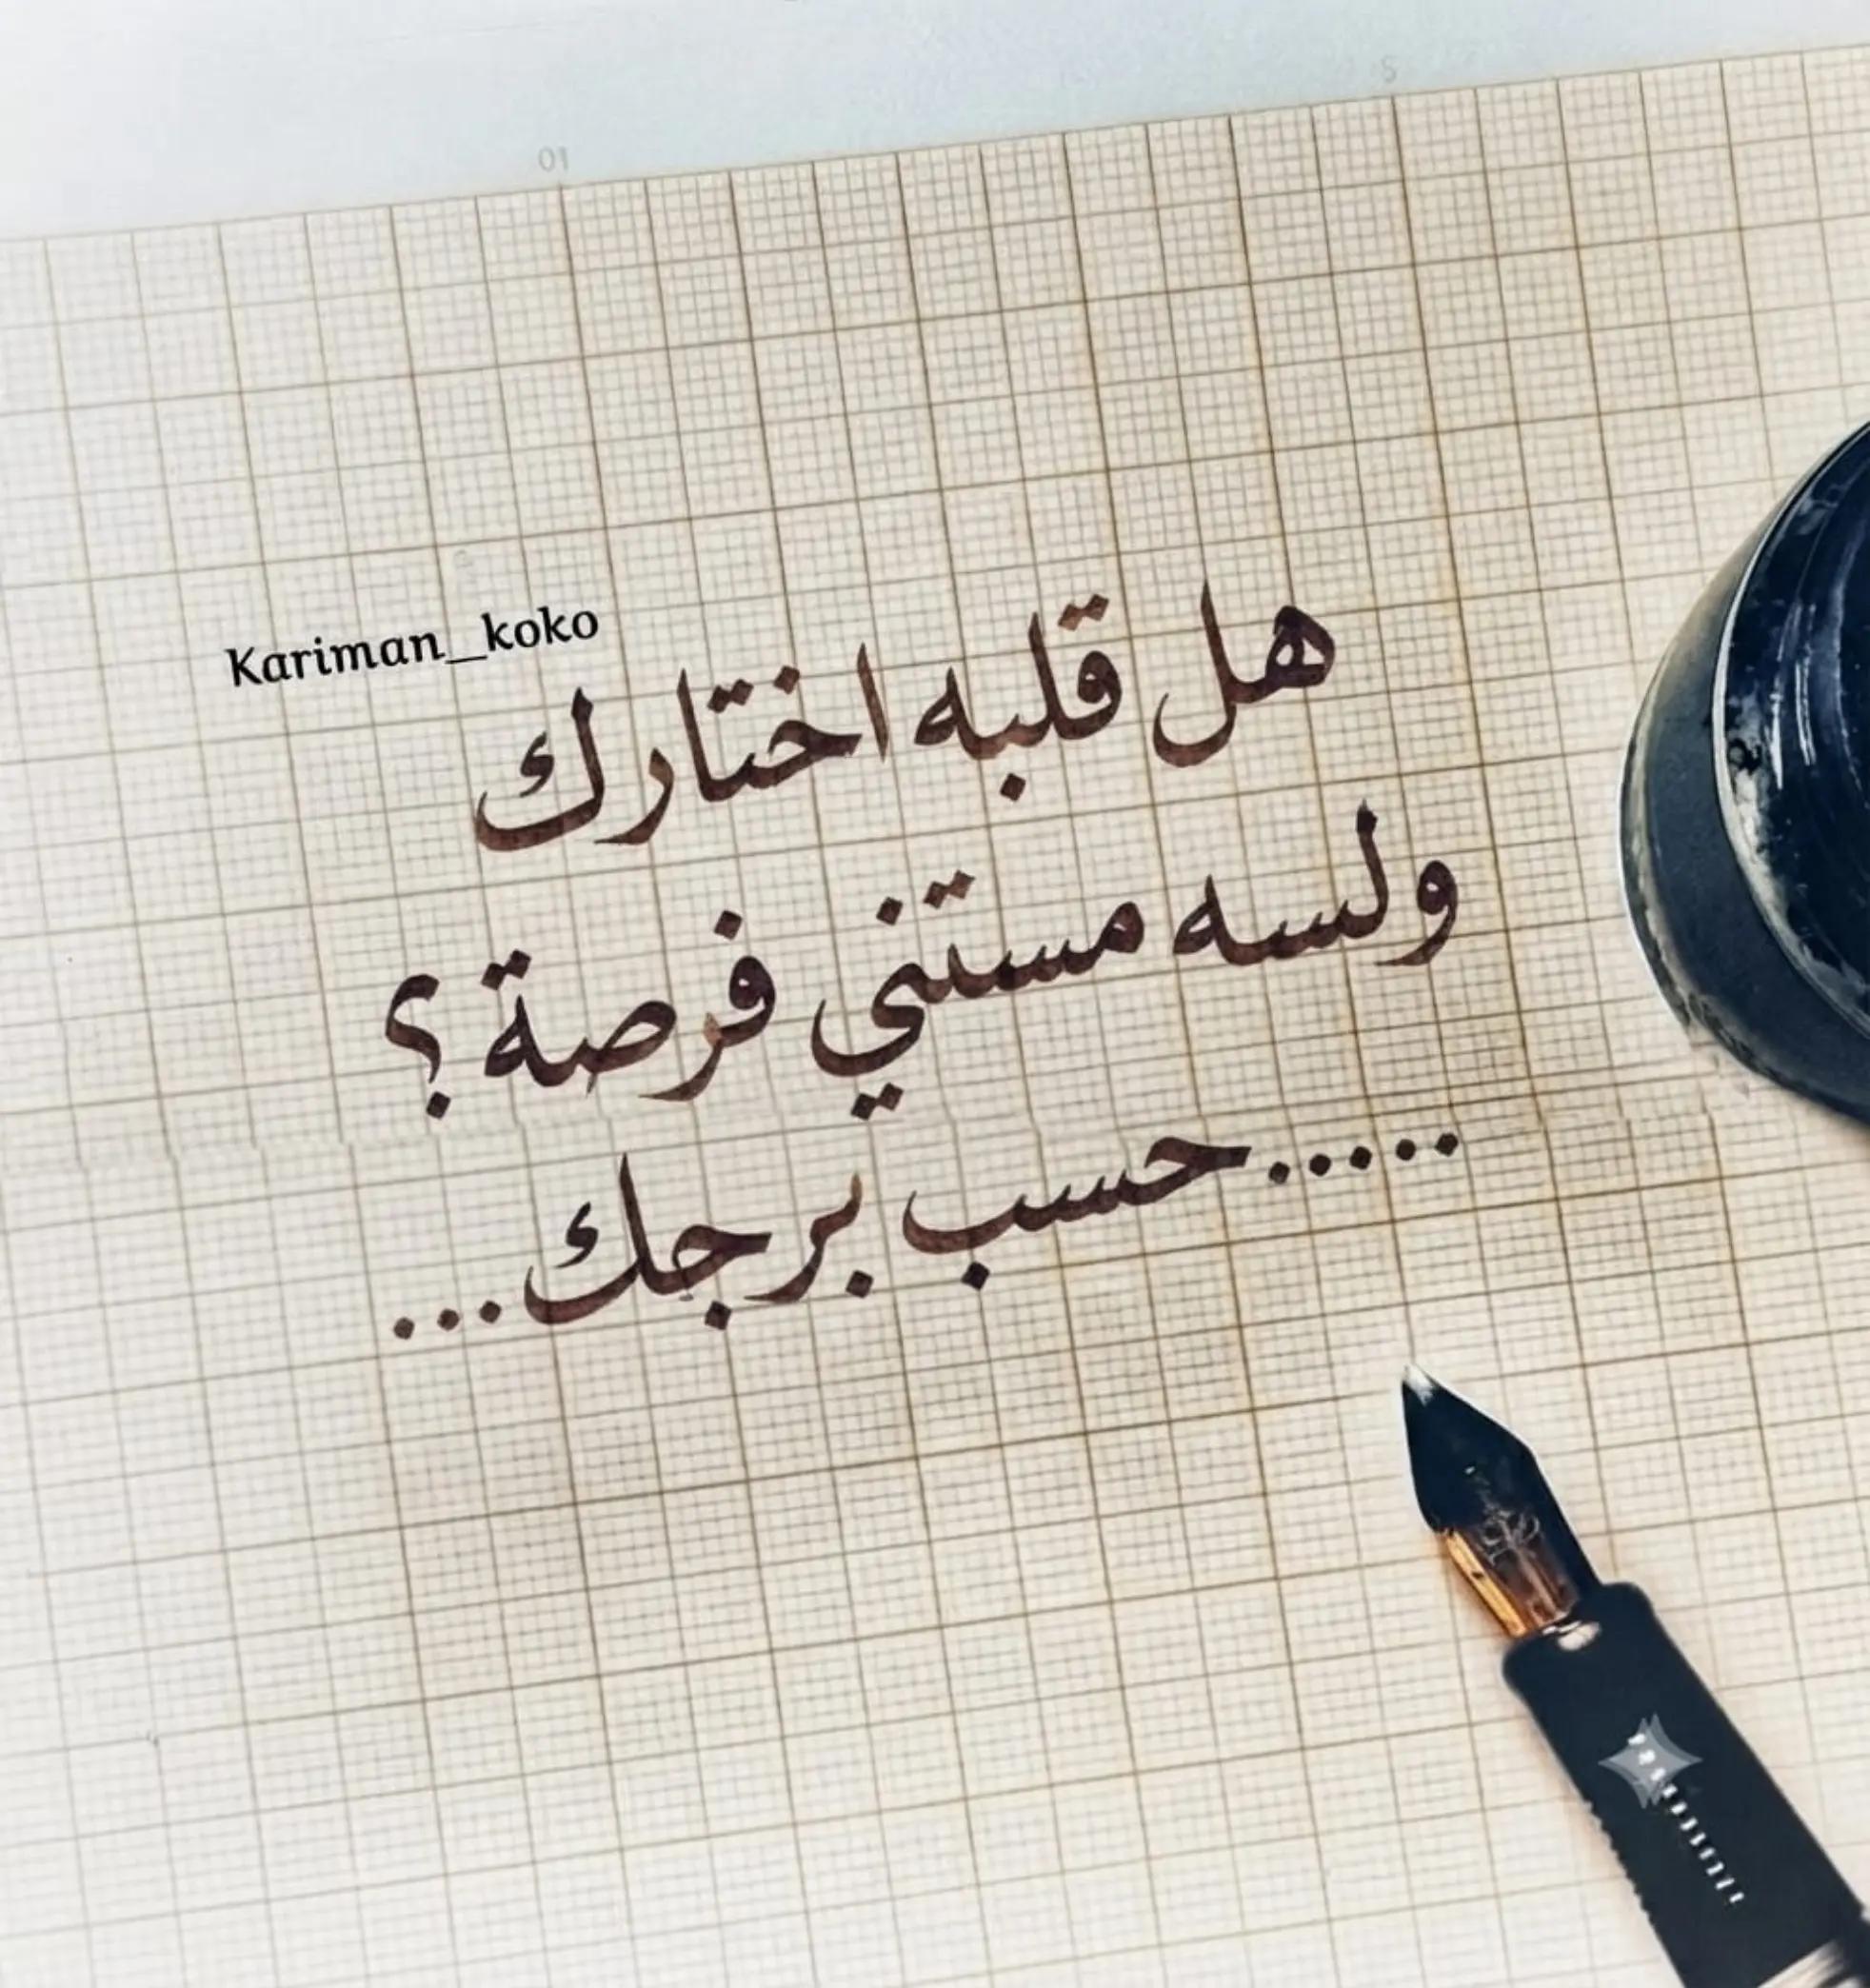 Kariman_koko
هل قلبه اختارك
ولسه مستني فرصة؟
.....حسب برجك...